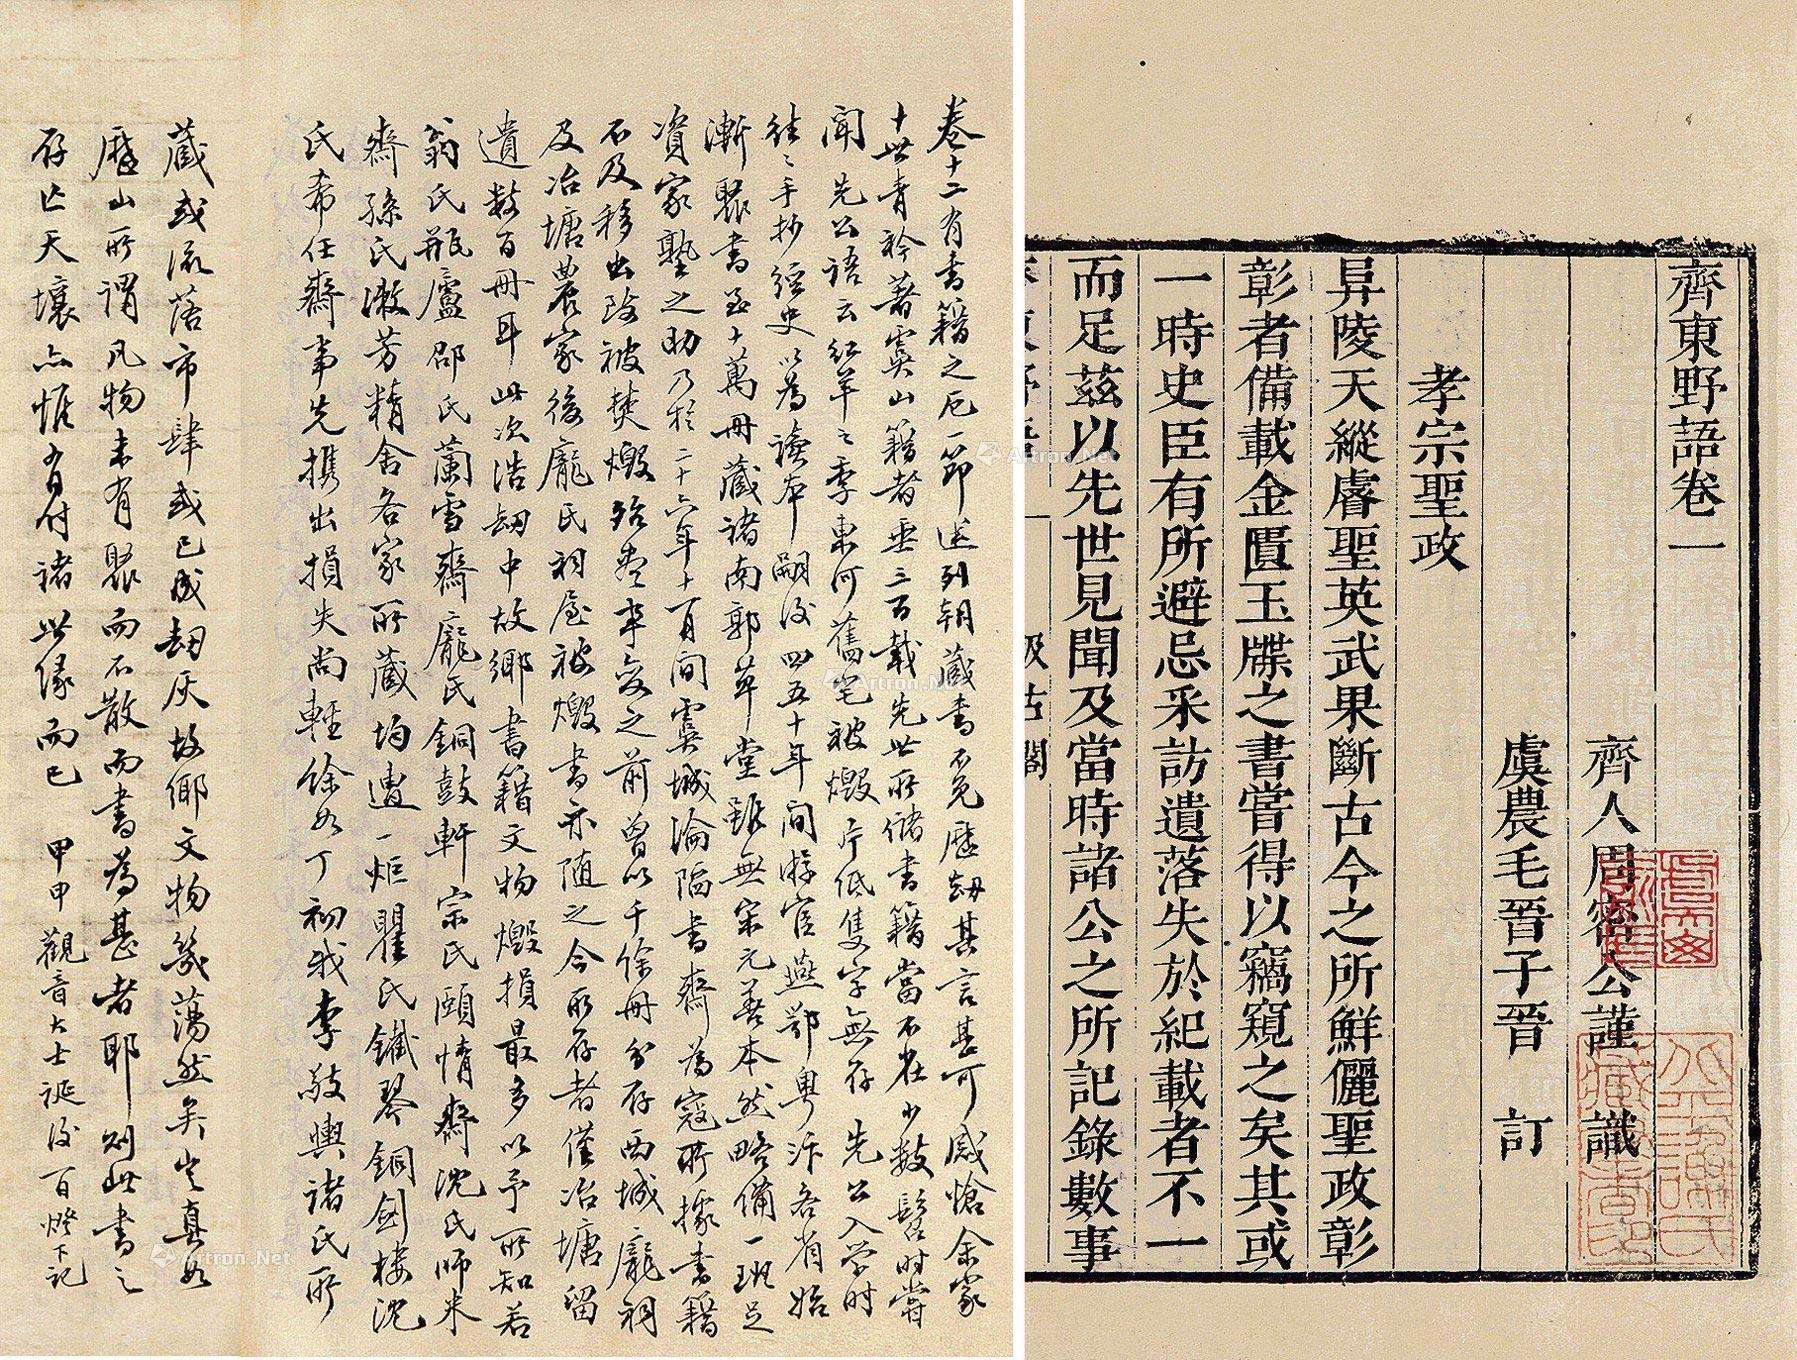 齊東野語卷一
齊人周密公謹 識
虞農毛晉子晉 訂
孝宗聖政
昇陵天縱睿聖英武果斷古今之所鮮儷聖政彰
彰者備載金匱玉牒之書嘗得以竊窺之矣其或
一時史臣有所避忌采訪遺落失於紀載者不一
而足茲以先世見聞及當時諸公之所記錄數事
汲古閣
卷十二有書籍之厄一節送列朝藏書不免歷劫其言甚可感愴余家
十世青衿著虞山籍者垂三百載先世所儲書籍當不在少數髫時嘗
聞先公語云紅羊之季東河舊宅被燬片低隻字無存先公入學時
往〻手抄經史以為讀本嗣後四五十年間游宦燕鄂粵汴各省始
漸聚書至十萬冊藏諸南郭草堂雖無宋元善本然略備一班足
資家塾之助乃於二十六年十一月間虞城淪陷書齋為寇所據書籍
不及移出致被焚燬殆盡事變之前曾以千餘冊分存西城龐祠
及冶塘農家後龐氏祠屋被燬書亦隨之今所存者僅冶塘留
遺數百冊耳此次浩劫中故鄉書籍文物燬損最多以予所知若
翁氏瓶廬邵氏蘭雪齋龐氏銅鼓軒宗氏頤情齋沈氏師米
齋孫氏漱芳精舍各家所藏均遭一炬瞿氏鐵琴銅劍樓沈
氏希任齋事先攜出損失尚輕餘如丁初我李敬輿諸氏所
藏或流落市肆或已成劫灰故鄉文物幾蕩然矣豈真如
歷山所謂凡物未有聚而不散而書為甚者耶則此書之
存亡天壤亦惟有付諸此緣而已 甲申觀音大士誕後百燈下記
Artron.Net
Artron.Net
Artron.Net